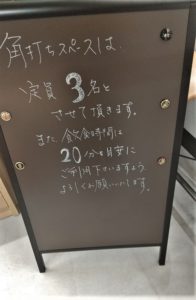 角打ちスペースは、
定員3名と
させて頂きます。
また、飲食時間は
20分を目安に
ご利用下さいますよう
よろしくお願いいたします。